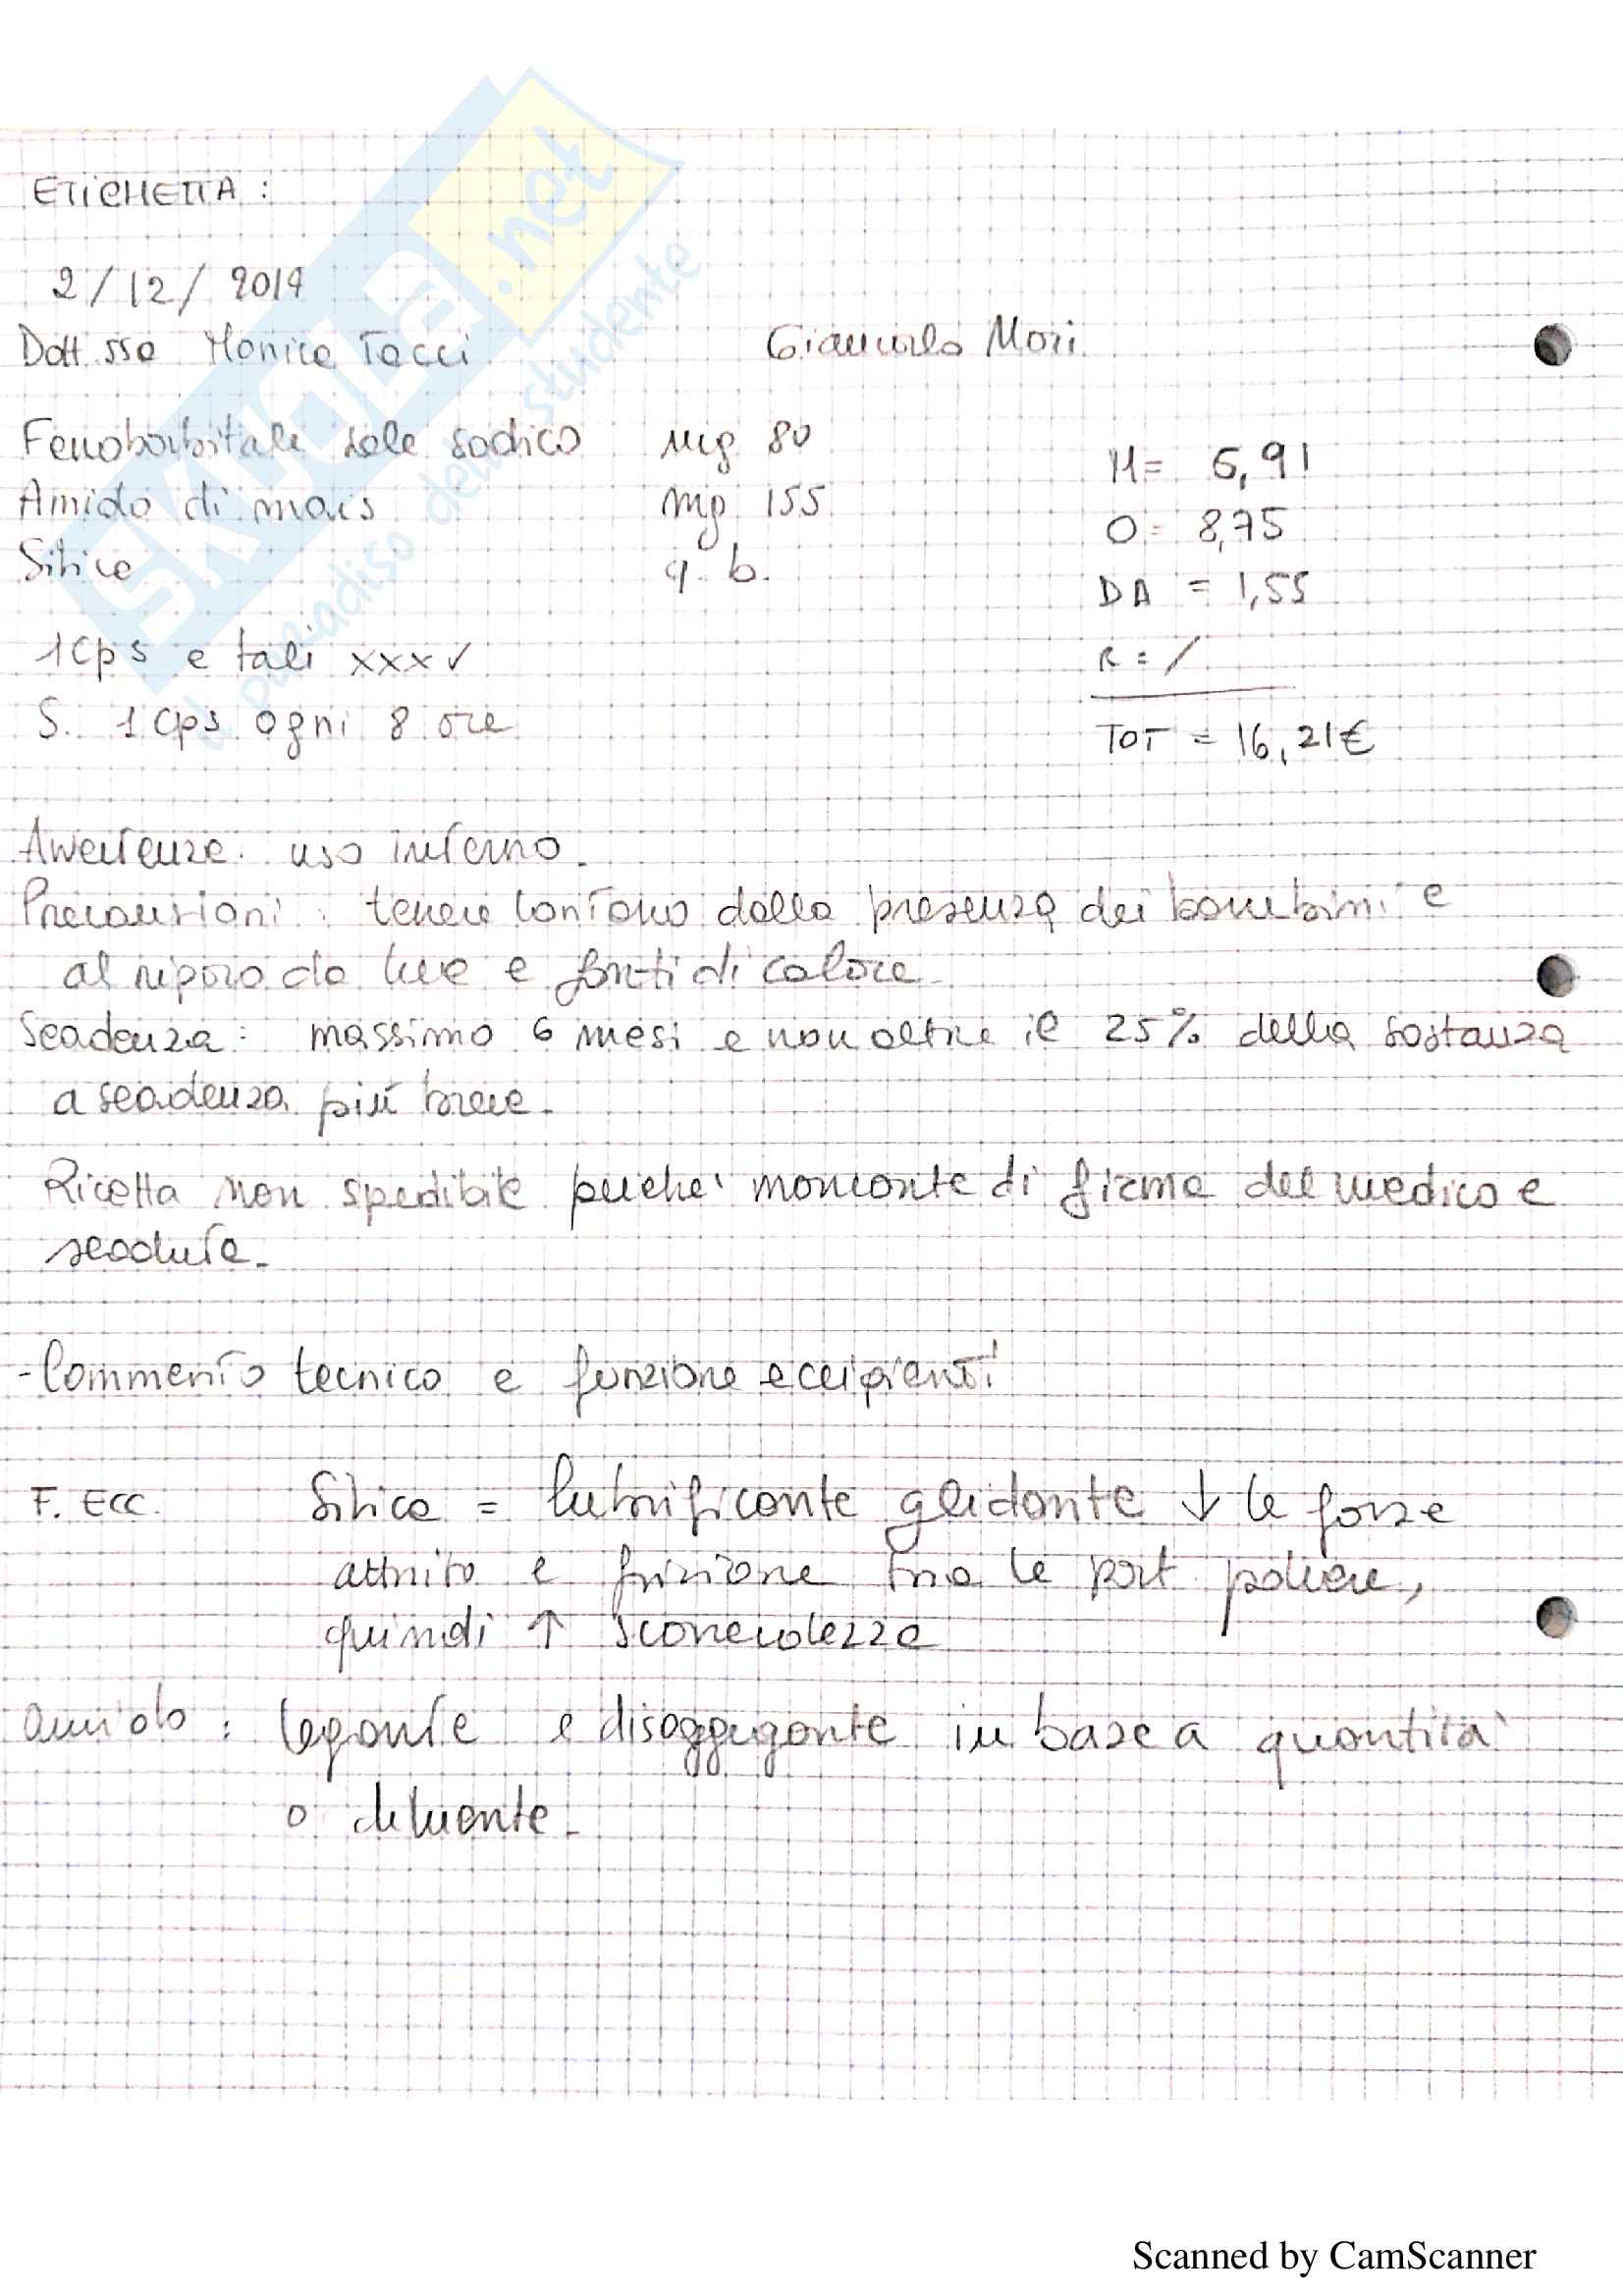 ETICHETTA :
2/12/2019
Dott.ssa Monica Tacci Giancarlo Mori
Fenobarbitale sale sodico mg 80
Amido di mais mg 155
Silice q.b.
M= 5,91
O= 8,75
DA = 1,55
R = /
TOT = 16,21€
1 cps e tali xxx ✓
S. 1 cps ogni 8 ore
Avvertenze: uso interno.
Precauzioni: tenere lontano dalla presenza dei bambini e
al riparo da luce e fonti di calore.
Scadenza: massimo 6 mesi e non oltre il 25% della sostanza
a scadenza più breve.
Ricetta non spedibile perche' mancante di firma del medico e
scaduta.
- Commento tecnico e funzione eccipienti
F. ECC. Silice = lubrificante glidante ↓ le forze
attrito e frizione tra le part polvere,
quindi ↑ scorrevolezza
amido : legante e disaggregante in base a quantità
o diluente.
SKUOLA.net
il paradiso dello studente
Scanned by CamScanner